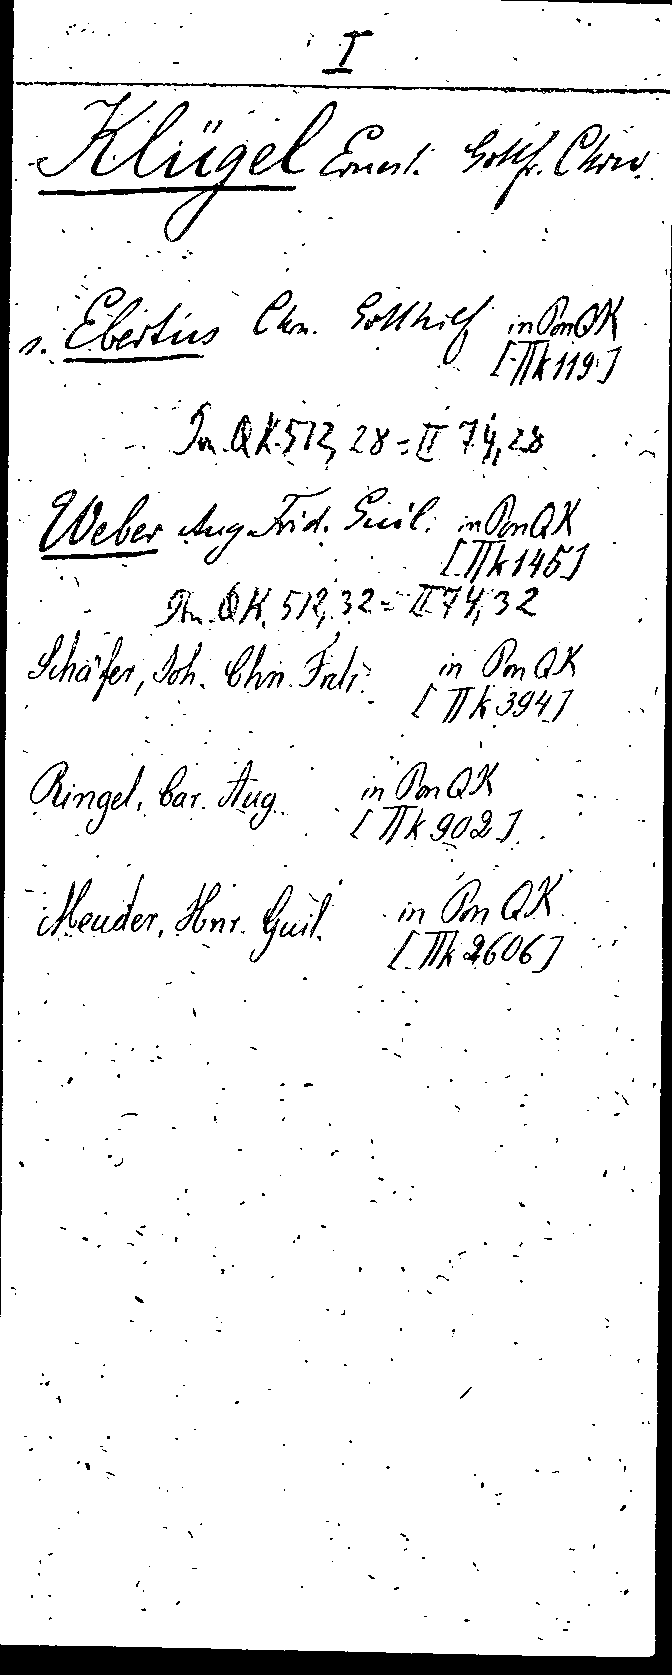 I
Klügel Ernst. Gottfr. Chrn.
s. Ebertus Chn. Gotthilf in Pon QK
[IIk119]
Pon. QK. 512, 28 = II 74, 28
Weber Aug. Frid. Guil. in Pon QK
[IIk145]
Pon. QK. 512, 32 = II 74, 32
Schäfer, Joh. Chn. Frdr. in Pon QK
[IIk394]
Ringel, Car. Aug. in Pon QK
[IIk902]
Meuder, Hnr. Guil. in Pon QK
[IIk2606]